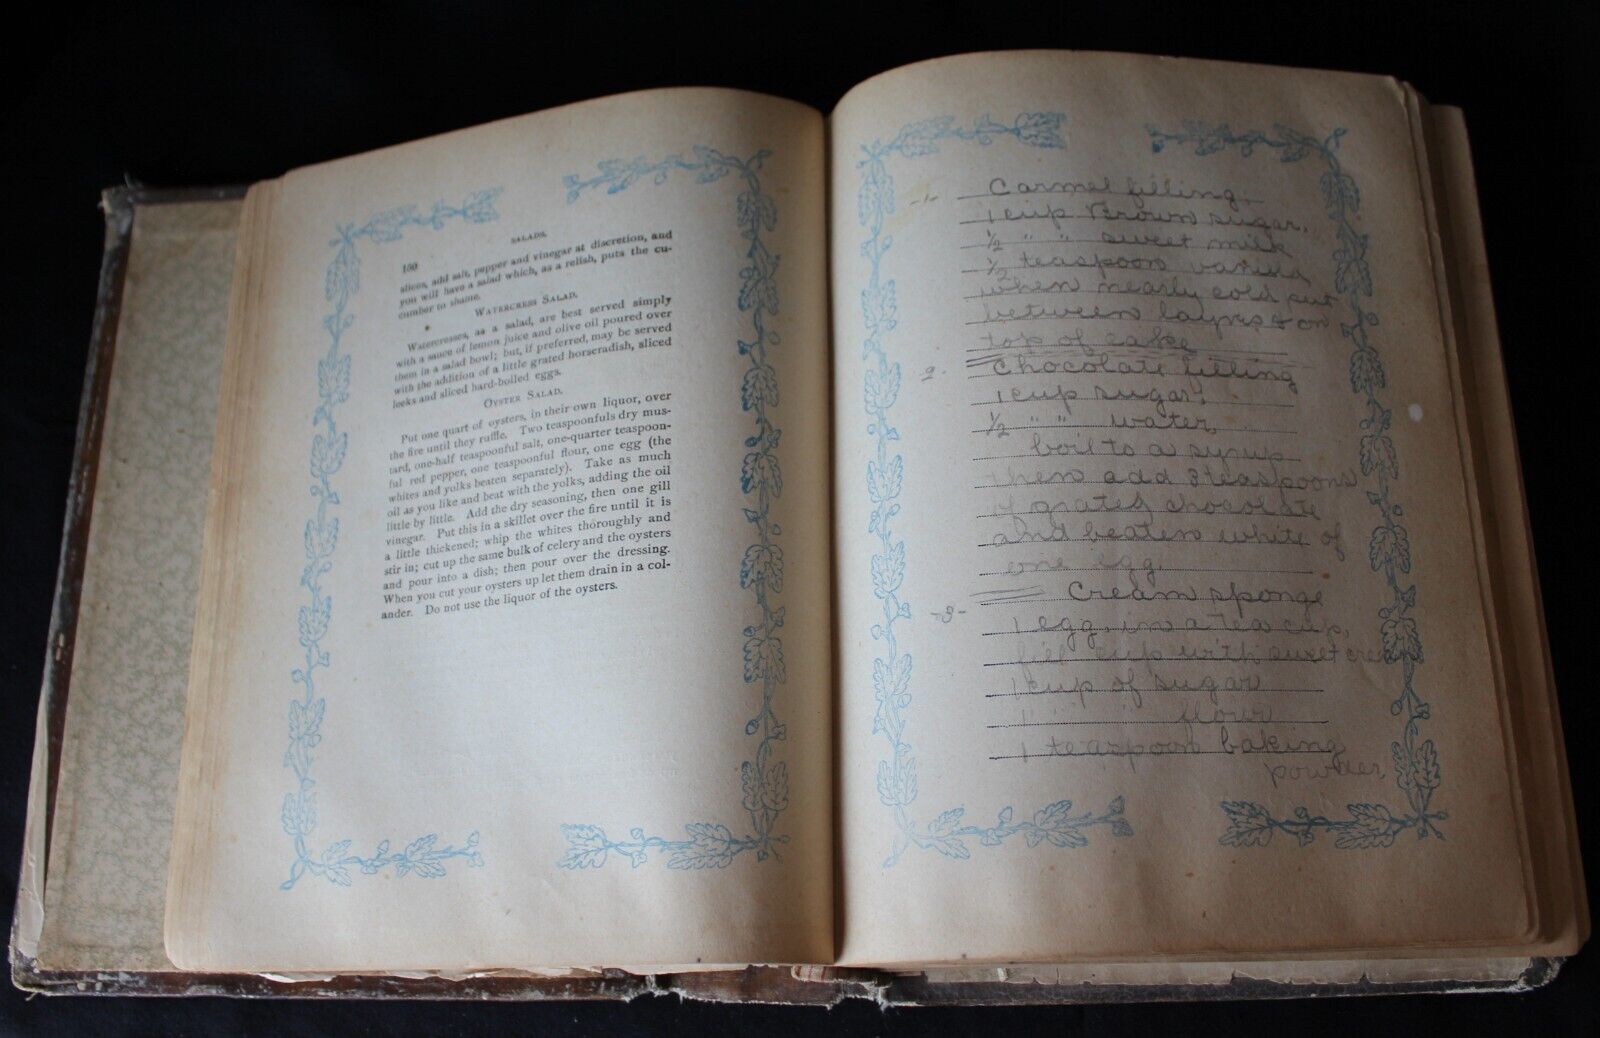 SALADS.
160
slices, add salt, pepper and vinegar at discretion, and
you will have a salad which, as a relish, puts the cu-
cumber to shame.
WATERCRESS SALAD.
Watercresses, as a salad, are best served simply
with a sauce of lemon juice and olive oil poured over
them in a salad bowl; but, if preferred, may be served
with the addition of a little grated horseradish, sliced
leeks and sliced hard-boiled eggs.
OYSTER SALAD.
Put one quart of oysters, in their own liquor, over
the fire until they ruffle. Two teaspoonfuls dry mus-
tard, one-half teaspoonful salt, one-quarter teaspoon-
ful red pepper, one teaspoonful flour, one egg (the
whites and yolks beaten separately). Take as much
oil as you like and beat with the yolks, adding the oil
little by little. Add the dry seasoning, then one gill
vinegar. Put this in a skillet over the fire until it is
a little thickened; whip the whites thoroughly and
stir in; cut up the same bulk of celery and the oysters
and pour into a dish; then pour over the dressing.
When you cut your oysters up let them drain in a col-
ander. Do not use the liquor of the oysters.
-1- Carmel filling.
1 cup Brown sugar,
1/2 " " sweet milk
1/2 teaspoon
when nearly cold put
between layres & on
top of cake
2- Chocolate filling
1 cup sugar,
1/2 " " water,
boil to a syrup
then add 3 teaspoons
of grated chocolate
and beaten white of
one egg.
-3- Cream sponge
1 egg, in a tea cup,
fill cup with sweet cream
1 cup of sugar
1 " " flour
1 teaspoon baking
powder,